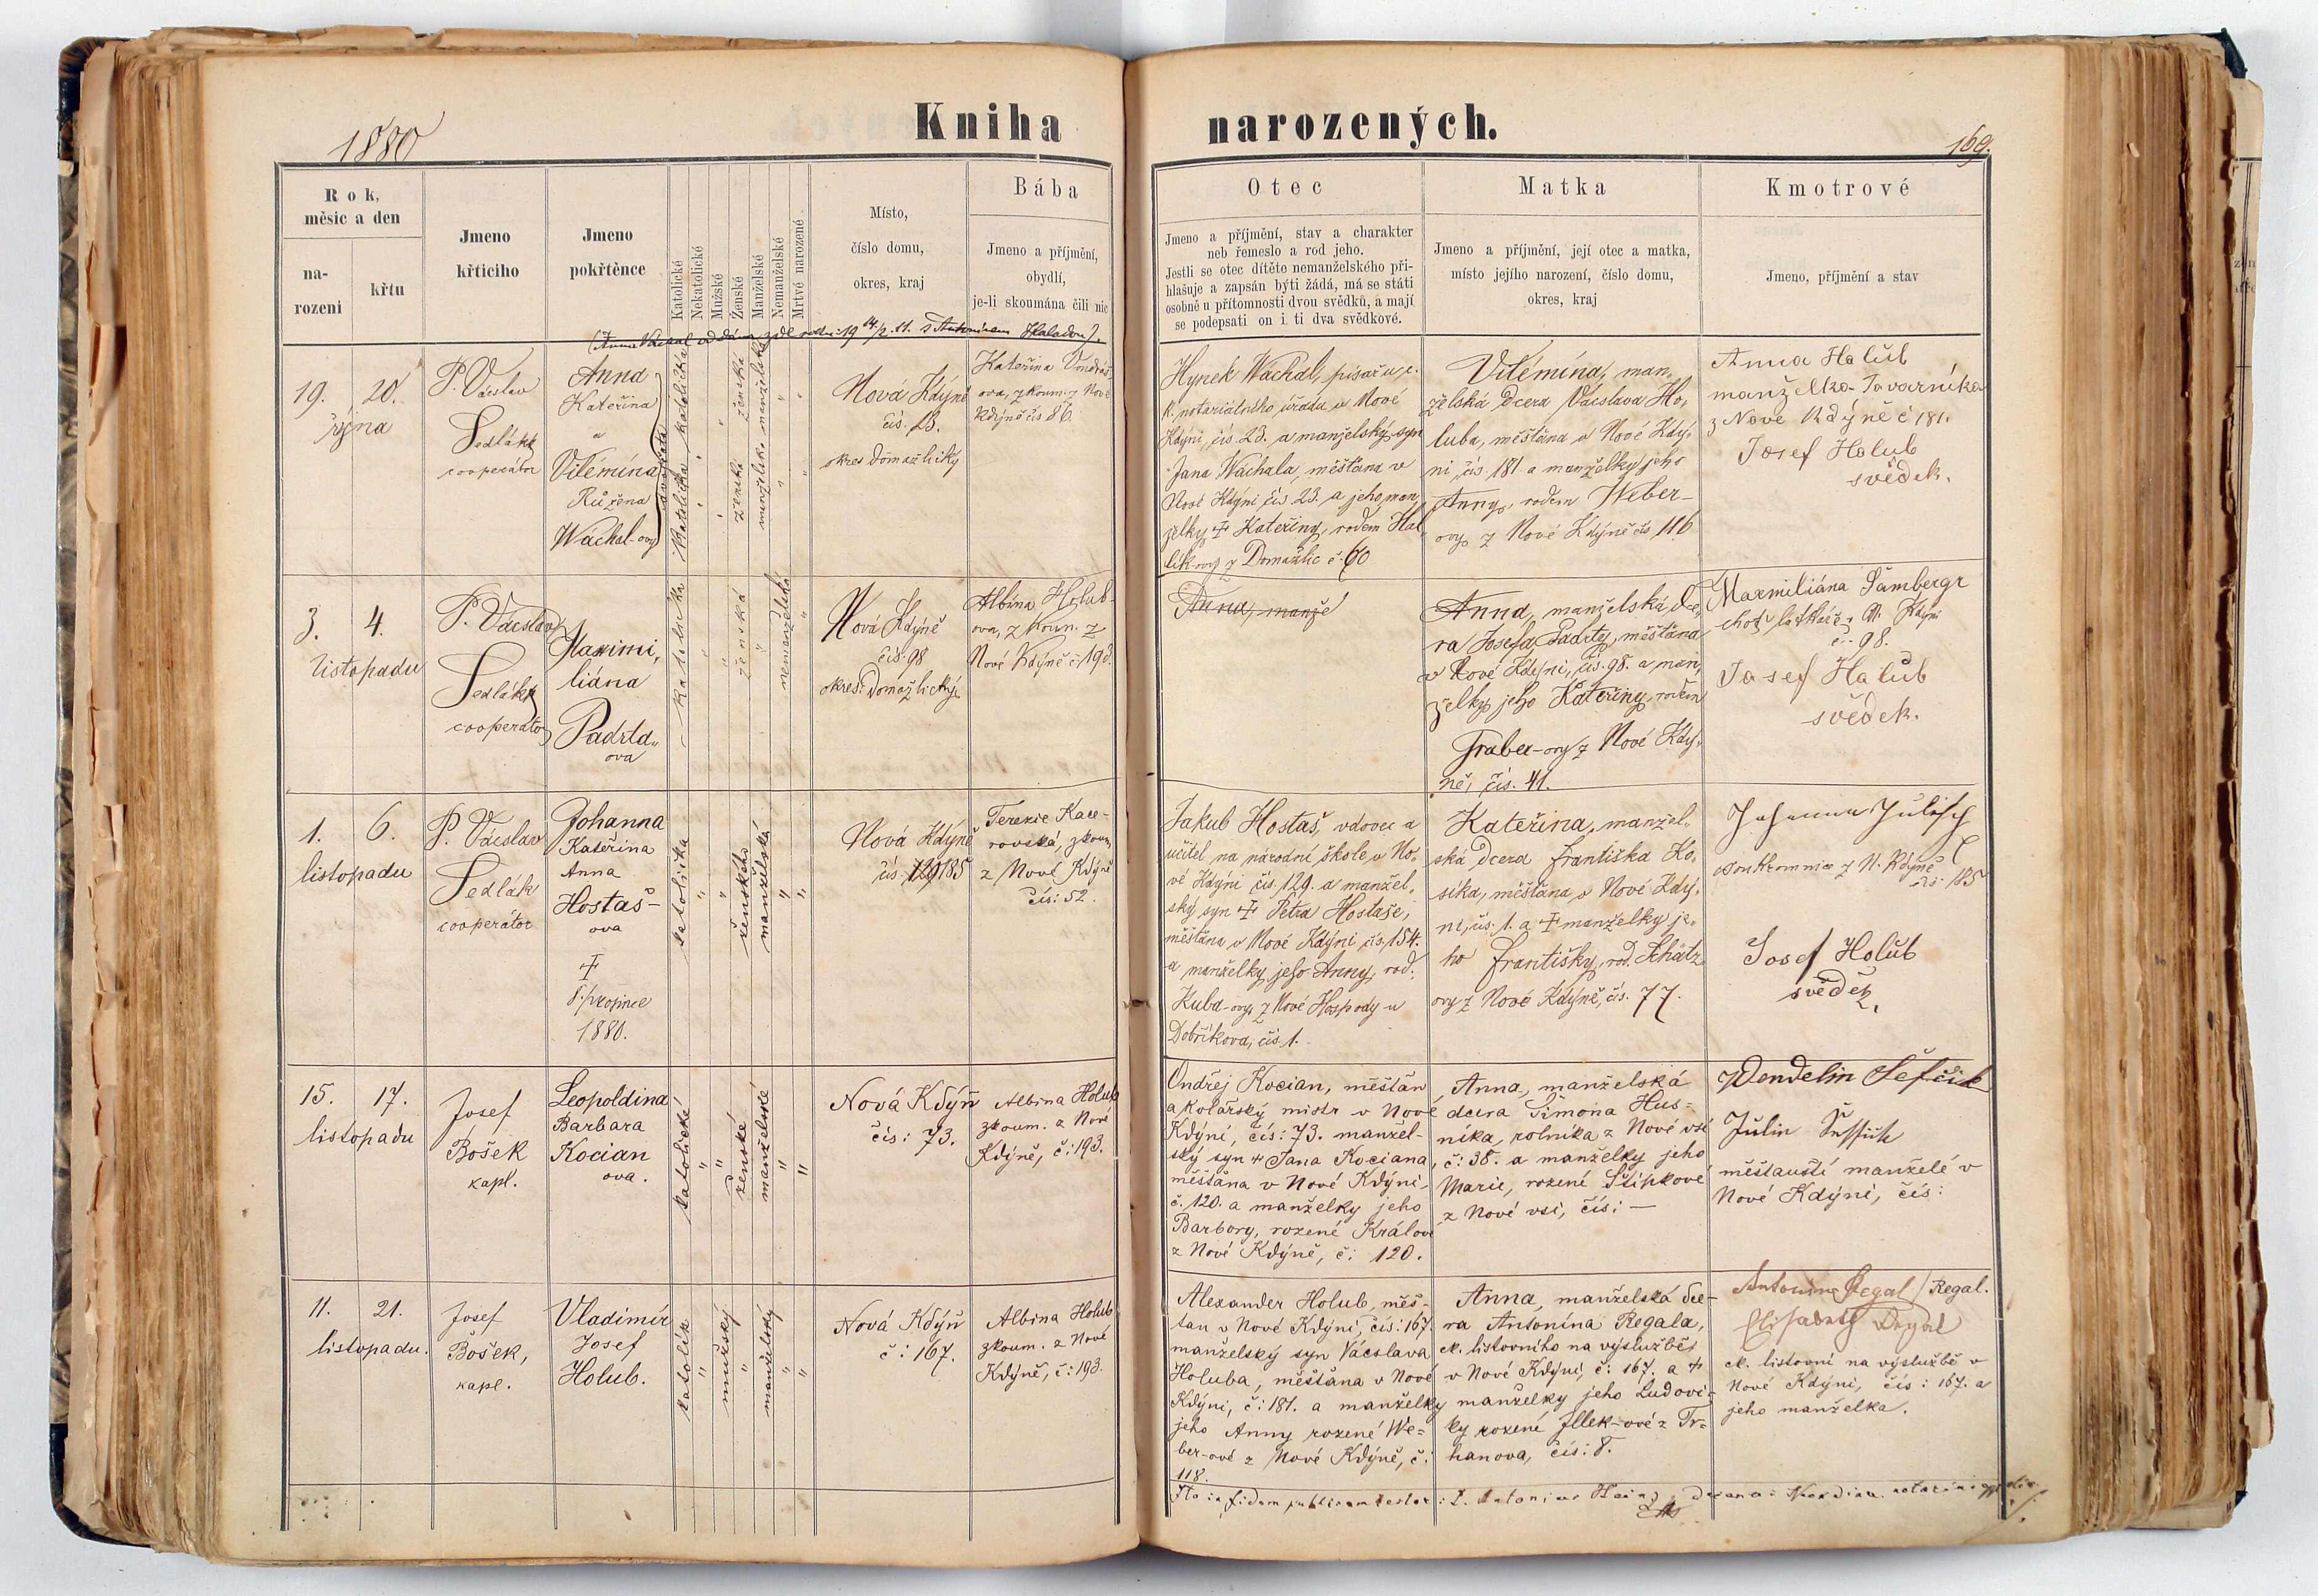 1880
Kniha narozených.
169.
Rok, měsic a den
na-
rozeni
křtu
Jmeno
křticiho
Jmeno
pokřtěnce
Katolické
Nekatolické
Mužské
Ženské
Manželské
Nemanželské
Mrtvé narozené
Místo,
číslo domu,
okres, kraj
Bába
Jmeno a příjmění,
obydlí,
je-li skoumána čili nic
Otec
Jmeno a příjmění, stav a charakter
neb řemeslo a rod jeho.
Jestli se otec dítěte nemanželského při-
hlašuje a zapsán býti žádá, má se státi
osobně u přítomnosti dvou svědků, a mají
se podepsati on i ti dva svědkové.
Matka
Jmeno a příjmění, její otec a matka,
místo jejího narození, číslo domu,
okres, kraj
Kmotrové
Jmeno, příjmění a stav
19. 20.
října
P. Vácslav
Sedlák
cooperátor
Anna
Kateřina
a
Vilémína
Růžena
Wachal-ovy
dvojčata
katolička
katolička
ženská
ženská
manželská
manželská
Nová Kdýně
čís. 23.
okres Domažlický
Kateřina
ova, zkoum. z Nové
Kdýně čís 86.
Hynek Wachal, písař u c.
k. notariátního úřadu v Nové
Kdýni, čís. 23. a manželský syn
Jana Wachala, měšťana v
Nové Kdýni čís 23. a jeho man
želky † Kateřiny, rodem Hal
lík-ovy z Domažlic č. 60
Vilémína, man-
želská dcera Vácslava Ho-
luba, měšťana v Nové Kdý-
ni, čís. 181. a manželky jeho
Anny, rodem Weber-
ovy z Nové Kdýně čís 116
Anna Halub
manželka
z Nové Kdýně č 181.
Josef Holub
svědek.
3. 4.
listopadu
P. Vácslav
Sedlák
cooperátor
Maximi-
liána
Padrta-
ova
katolička
ženská
nemanželská
Nová Kdýně
čís. 98
okres Domažlický
Albína Holub-
ova, zkoum. z
Nové Kdýně č. 193.
Anna, manže
Anna, manželská dce-
ra Josefa Padrty, měšťana
v Nové Kdýni, čís. 98. a man-
želky jeho Kateřiny, rodem
Graber-ovy z Nové Kdý-
ně, čís. 41.
Maxmiliána Šambergr
choť N. Kdýni
č. 98.
Josef Halub
svědek.
1. 6.
listopadu
P. Vácslav
Sedlák
cooperátor
Johanna
Kateřina
Anna
Hostaš-
ova
†
8. prosince
1880.
katolička
ženského
manželská
Nová Kdýně
čís. 129 185
Terezie Kace-
rovská, zkoum
z Nové Kdýně
čís: 52.
Jakub Hostaš, vdovec a
učitel na národní škole v No-
vé Kdýni čís. 129. a manžel-
ský syn † Petra Hostaše,
měšťana v Nové Kdýni čís. 154.
a manželky jeho Anny, rod.
Kuba-ovy z Nové Hospody u
Dobříkova, čís. 1.
Kateřina, manžel-
ská dcera Františka Ko-
síka, měšťana v Nové Kdý-
ni, čís. 1. a † manželky je-
ho Františky, rod. Schätz
ovy z Nové Kdýně, čís. 77.
Johanna Julisch
z N. Kdýně
čís: 185
Josef Holub
svědek.
15. 17.
listopadu
Josef
Bošek
kapl.
Leopoldina
Barbara
Kocian
ova.
katolické
ženské
manželské
Nová Kdýň
čís: 73.
Albina Holub
zkoum. z Nové
Kdýně, č: 193.
Ondřej Kocian, měšťan
a kolářský mistr v Nové
Kdýni, čís: 73. manžel-
ský syn † Jana Kociana,
měšťana v Nové Kdýni
č. 120. a manželky jeho
Barbory, rozené Králové
z Nové Kdýně, č: 120.
Anna, manželská
dcera Šimona Hus-
níka, rolníka z Nové vsi
č: 38. a manželky jeho
Marie, rozené Štípkové
z Nové vsi, čís: —
Wendelin Šefčik
Julie
měšťanští manželé v
Nové Kdýni, čís:
11. 21.
listopadu.
Josef
Bošek,
kapl.
Vladimír
Josef
Holub.
katolík
mužský
manželský
Nová Kdýň
č: 167.
Albina Holub
zkoum. z Nové
Kdýně, č: 193.
Alexander Holub, měš-
ťan v Nové Kdýni, čís: 167.
manželský syn Václava
Holuba, měšťana v Nové
Kdýni, č: 181. a manželky
jeho Anny rozené We-
ber-ové z Nové Kdýně, č:
118.
Anna, manželská dce-
ra Antonína Regala,
ck. listovního na výslužbě
v Nové Kdýni, č: 167. a †
manželky jeho Ludoví-
ky rozené Illek-ové z Tr-
hanova, čís: 8.
Antonin Regal / Regal.
Elisabeth Regal
ck. listovní na výslužbě v
Nové Kdýni, čís: 167. a
jeho manželka.
Ita in fidem publicam testor: